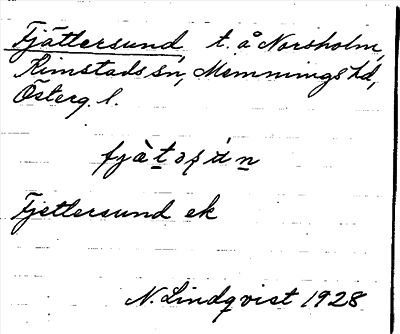 Fjättersund, t. å Norsholm,
Kimstads sn, Memmings hd,
Österg. l.
Fjettersund ek
N. Lindqvist 1928